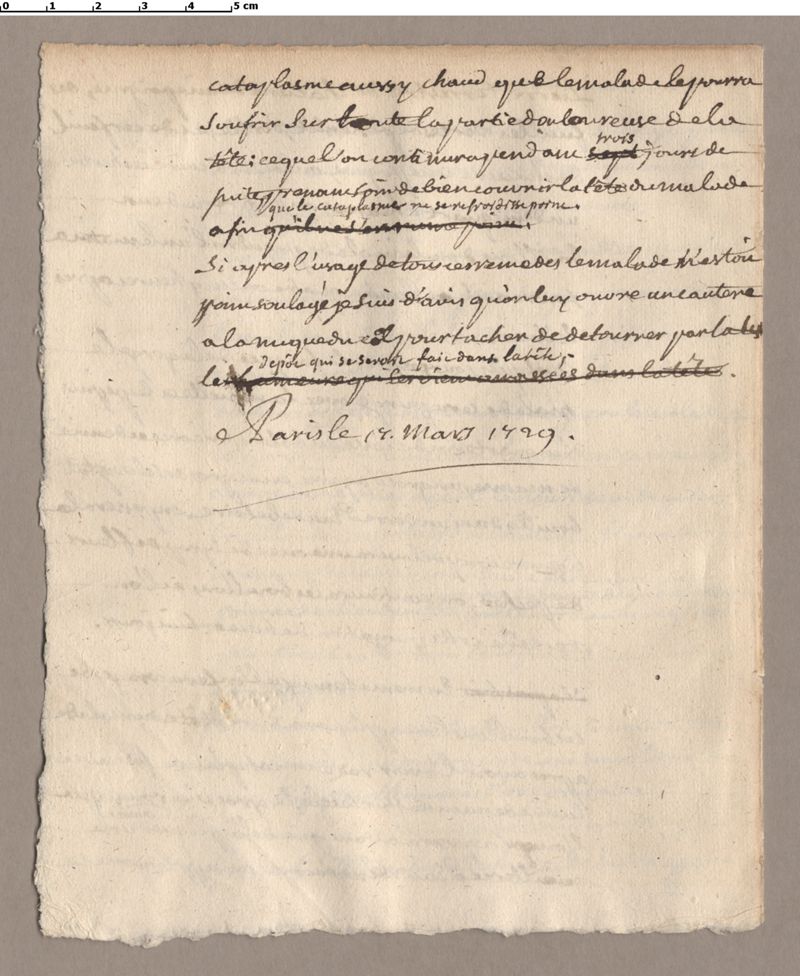 0 1 2 3 4 5 cm
cataplasme aussy chaud que le malade le pourra
soufrir sur toute la partie douloureuse de la
trois
tête: ce que l'on continura pendant sept jours de
suite prenant soin de bien couvrir la tête du malade
que le cataplasme ne se refroidisse point.
afin qu'il ne s'enrume point.
Si apres l'usage de tous ces remedes le malade n'estoit
point soulagé je suis d'avis qu'on luy ouvre un cautere
a la nuque du col pour tacher de detourner par la
depôt qui se seroit fait dans la tête;
les humeurs qui dans la tête.
A Paris le mars 1729.